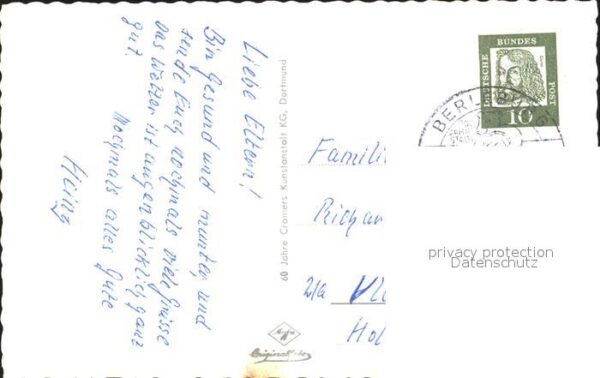 Liebe Eltern!
Bin gesund und munter, und
sende Euch nochmals viele Grüsse
Das Wetter ist augenblicklich ganz
gut.
Nochmals alles Gute
Heinz
60 Jahre Cramers Kunstanstalt KG, Dortmund
DEUTSCHE BUNDES POST
10
BERLIN
Famili
Richar
Hol
privacy protection
Datenschutz
Agfa
Originalfoto